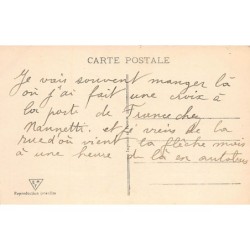 CARTE POSTALE
Je vais souvent manger là
où j'ai fait une croix à
la porte de France chez
Nannetti. et je viens de la
rue d'où vient la flèche mais
à une heure d là en autobus
Reproduction interdite